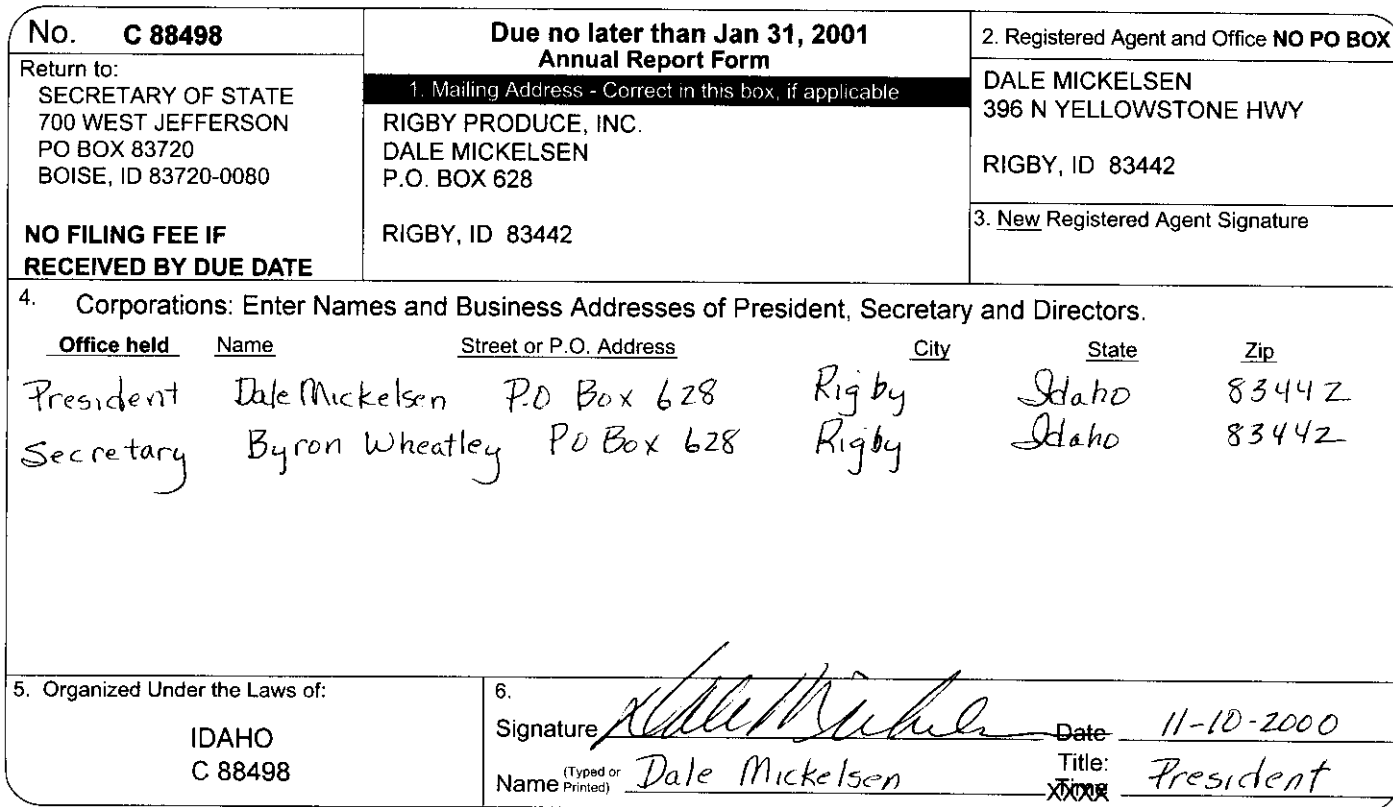 No. C 88498
Return to:
SECRETARY OF STATE
700 WEST JEFFERSON
PO BOX 83720
BOISE, ID 83720-0080
NO FILING FEE IF
RECEIVED BY DUE DATE
Due no later than Jan 31, 2001
Annual Report Form
1. Mailing Address - Correct in this box, if applicable
RIGBY PRODUCE, INC.
DALE MICKELSEN
P.O. BOX 628
RIGBY, ID 83442
2. Registered Agent and Office NO PO BOX
DALE MICKELSEN
396 N YELLOWSTONE HWY
RIGBY, ID 83442
3. New Registered Agent Signature
4. Corporations: Enter Names and Business Addresses of President, Secretary and Directors.
Office held Name Street or P.O. Address City State Zip
President Dale Mickelsen P.O Box 628 Rigby Idaho 83442
Secretary Byron Wheatley PO Box 628 Rigby Idaho 83442
5. Organized Under the Laws of:
IDAHO
C 88498
6.
Signature Dale Mickelsen Date 11-10-2000
Name (Typed or Printed) Dale Mickelsen Title: President